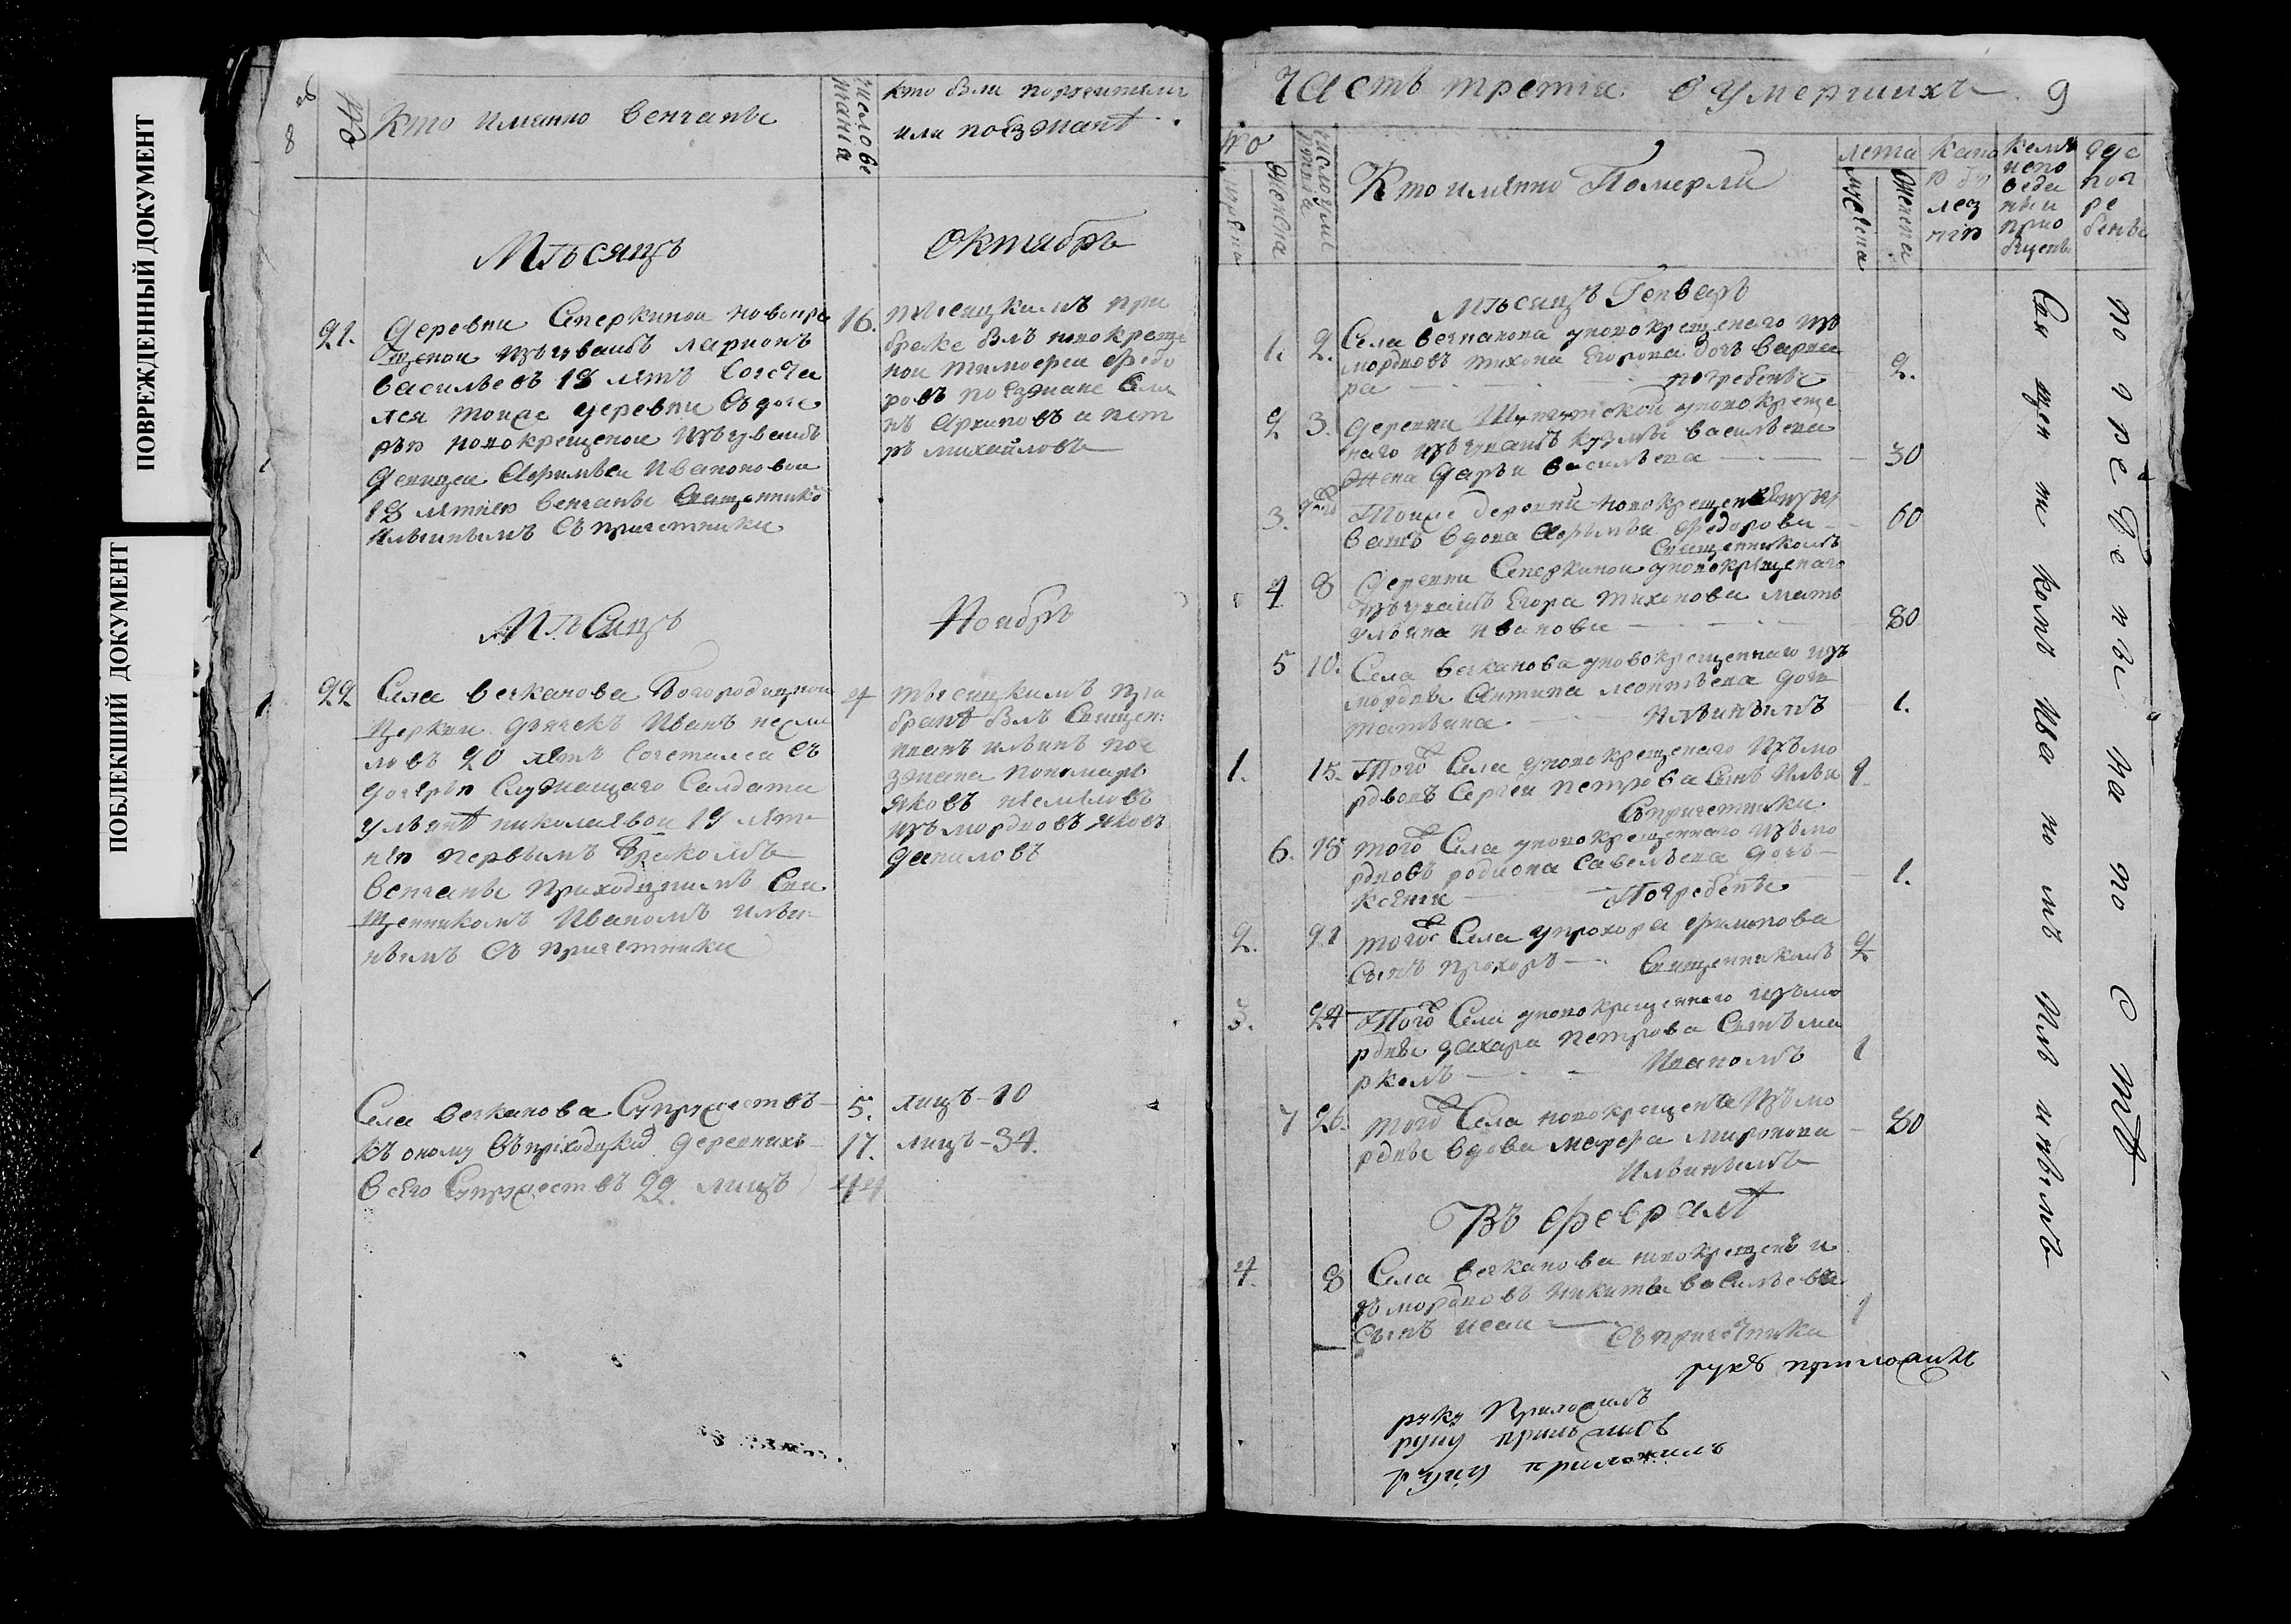 ПОВРЕЖДЕННЫЙ ДОКУМЕНТ
ПОБЛЕКШИЙ ДОКУМЕНТ
об
8
№
Кто имянно венчаны
число ве
нчания
кто были поручители
или поезжанѣ
Мѣсяцъ
Октябрь
21.
Деревни Сперкиной новокре
щеной изъ чувашъ ларионъ
васильевъ 18 лѣтъ Сочета
лся тоиже деревни Съ доче
рью новокрещеной изъ чувашъ
девицеи Афимьеи Ивановои
18 лѣтнею венчаны Священнико
Ильинымъ Съ причетники
16.
тысецкимъ при
браке былъ новокреще
нои тимофеи Федо
ровъ поезжане
Архиповъ а пет
ръ михайловъ
Мѣсяцъ
Ноябрь
22
Села вечканова Богородицкои
Церкви дьячекъ Иванъ несме
ловъ 20 лѣтъ Сочетался Съ
дочерью Служащаго Салдата
ульянѣ николаявои 19 лѣт
нею первымъ бракомъ
венчаны приходцкимъ Свя
щенникомъ Иваномъ Ильи
нымъ Съ причетники
4
тысяцкимъ при
бракѣ былъ Священ:
иванъ ильинъ пое
зжана пономарь
яковъ несмѣловъ
изъ мордвовъ яковъ
даниловъ
Села вечканова Супружествъ
5.
лицъ - 10
къ оному въ приходцкихъ деревняхъ
17.
лицъ - 34.
всего Супружествъ 22. лицъ
44
Часть третия О умершихъ
9
№
мужеска
женска
число уме
ртвия
Кто имянно Померли
лета
мужеска
женска
како
ю бо
лез
нию
кемъ
испо
веда
ны и
прио
бщены
где
пог
ре
бены
мѣсяцъ Генварь
1.
2.
Села вечканова у новокрещенаго изъ
мордвовъ тихона Егорова дочь варва
ра
погребены
2.
2
3.
деревни у новокреще
наго изъ чувашъ кузмы васильева
жена дарья васильева
30
3.
Тоиже деревни новокрещена изъ чу
вашъ вдова Афимья Федорова
60
Священникомъ
4
8
Деревни Сперкинои у новокрещенаго
изъ чувашъ Егора тихонова мать
ульяна иванова
80
5
10.
Села вечканова у новокрещеннаго изъ
мордвы Антипа леонтьева дочь
татьяна
Ильинымъ
1.
1.
15.
Того Села у новокрещенаго Изъ мо
рдвовъ Сергеи петрова Сынъ Илья
1.
Съ причетники
6.
18
того Села у новокрещеннаго изъ мо
рдвовъ родиона Савельева дочь
ксения
Погребены
1.
2.
21
того Села у прохора филипова
Сынъ прохоръ
Священникомъ
2
3.
24
Того Села у новокрещеннаго изъ мо
рдвы захара петрова Сынъ ма
ркелъ
Иваномъ
1
7
26.
того Села новокрещена Изъ мо
рдвы вдова марфа миронова
80
Ильинымъ
Въ феврале
4.
8
Села вечканова новокрещенъ и
зъ мордвовъ никиты васильева
Сынъ исаи
1
Съ причетники
Священникомъ Иваномъ Ильинымъ
погребены на погосте
руку приложилъ
руку приложилъ
руку приложилъ
руку приложилъ